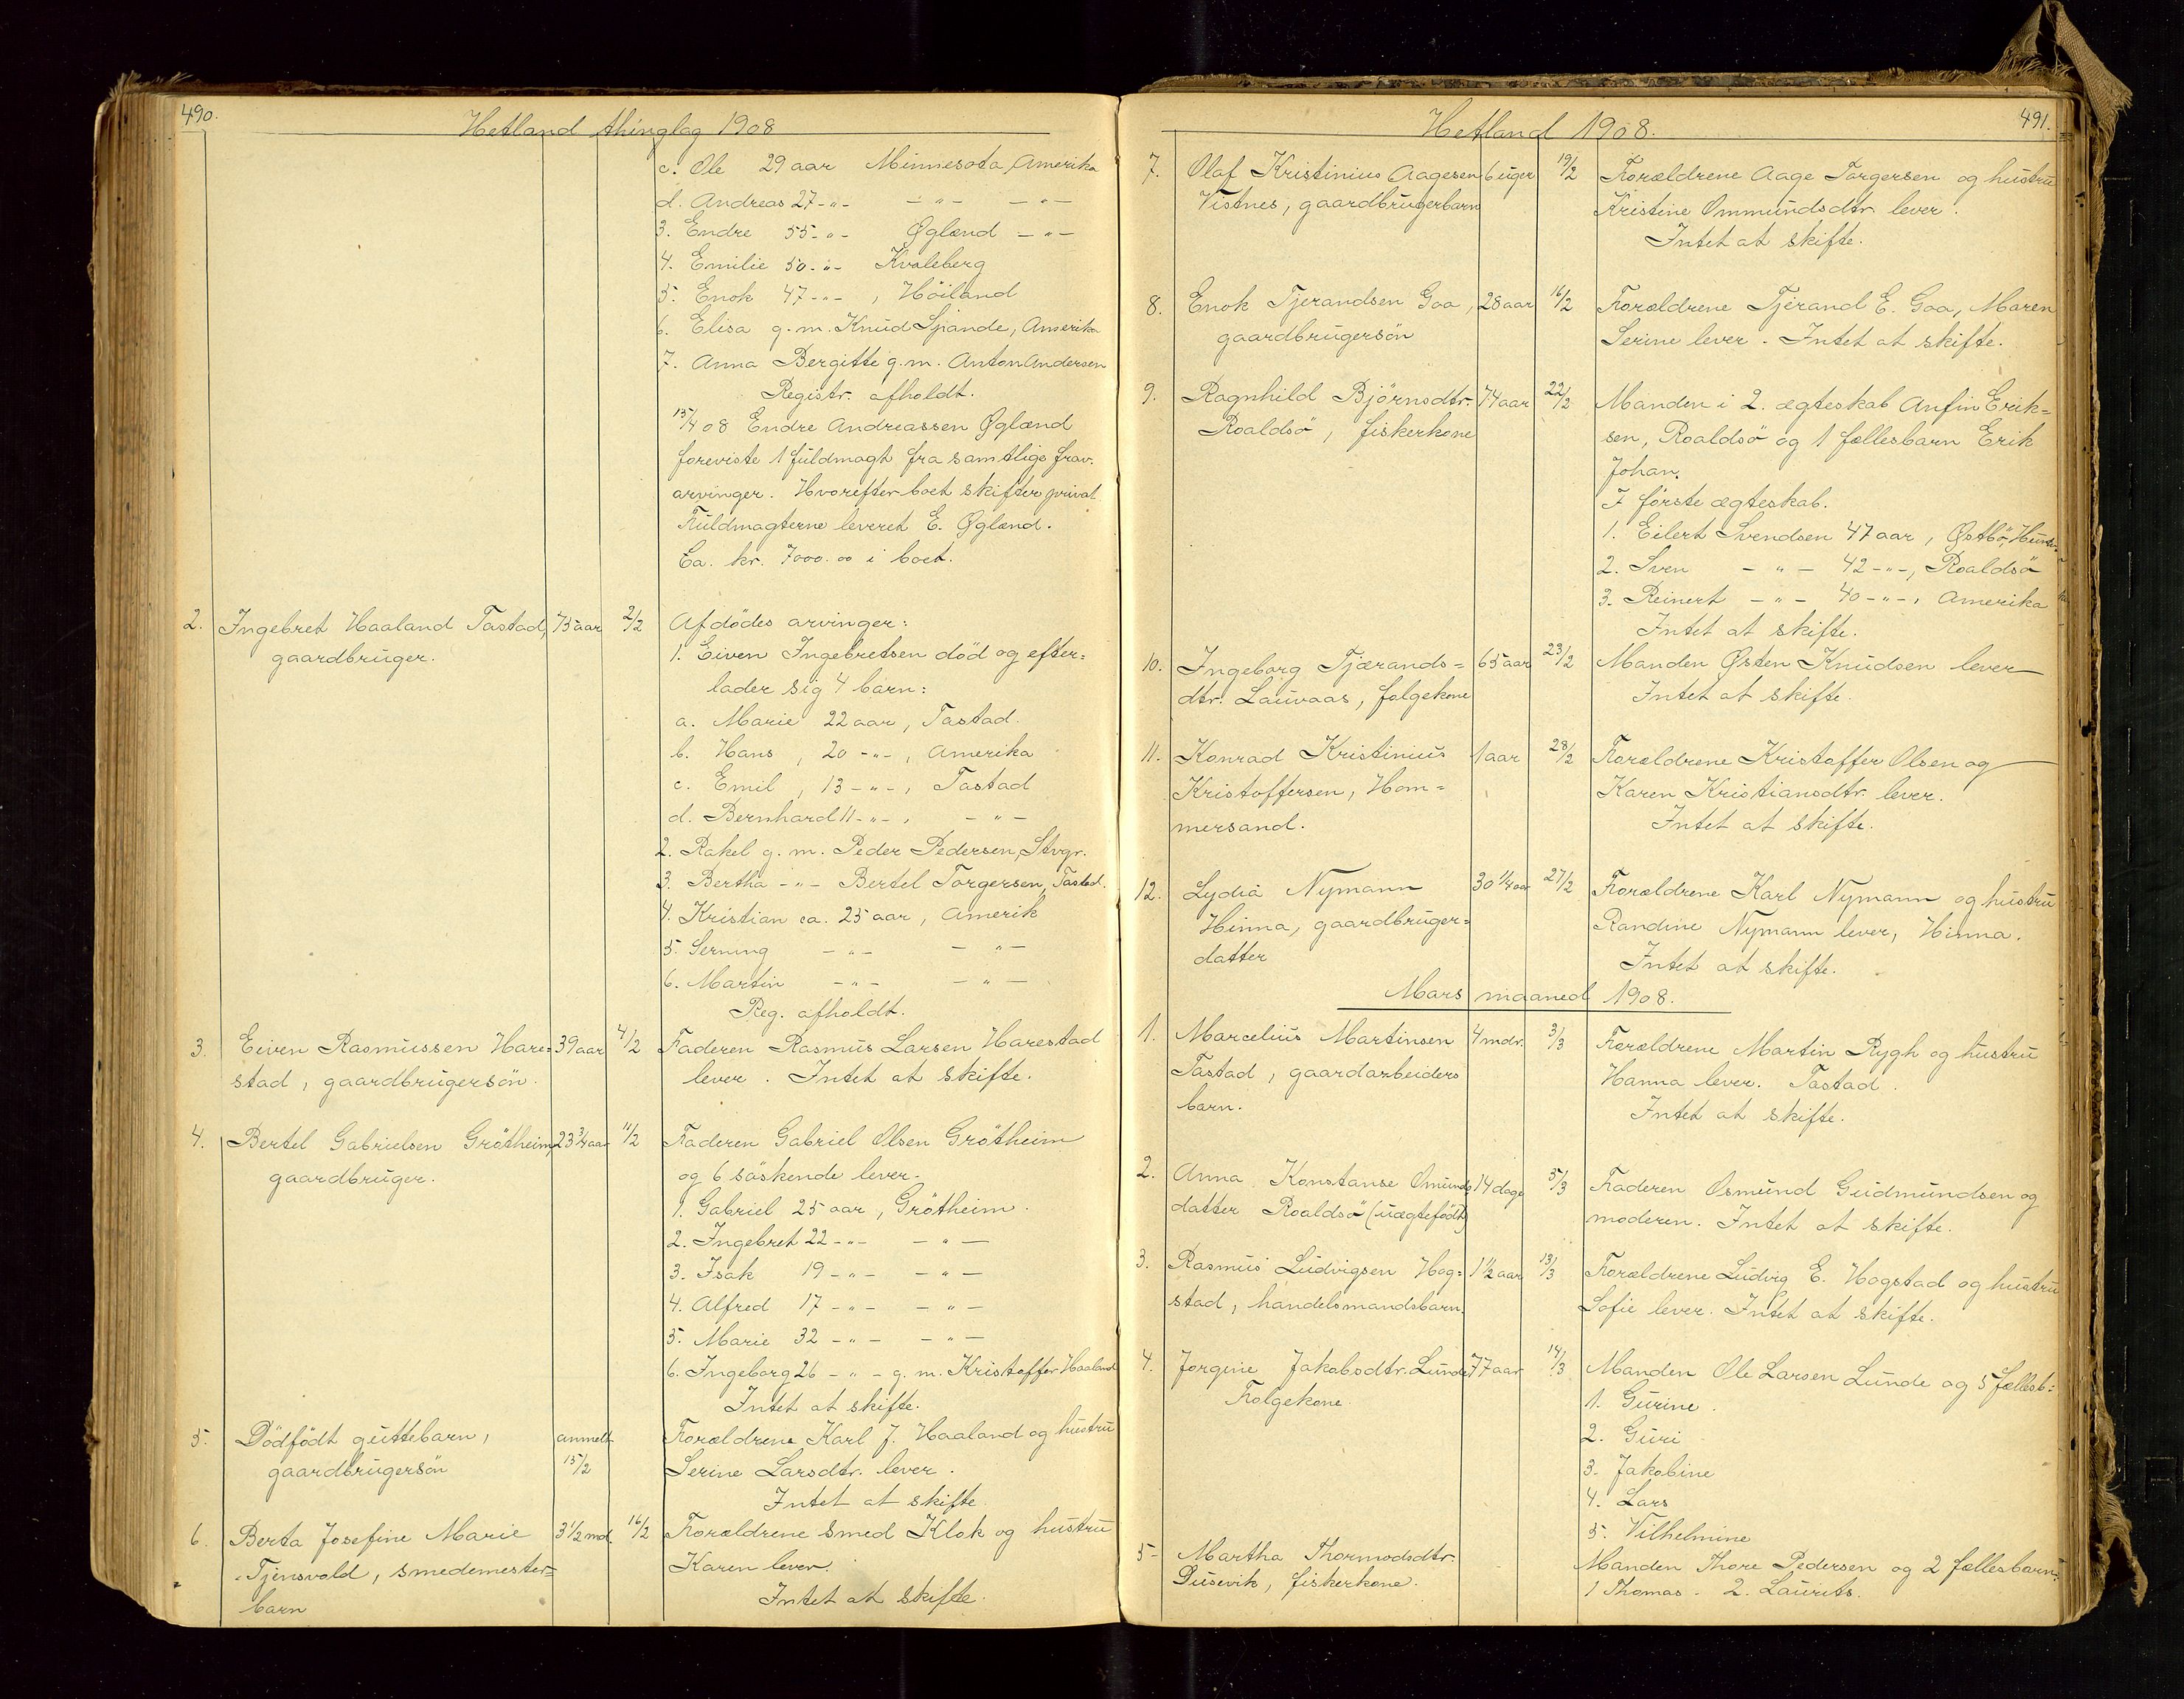 490.
Hetland thinglag 1908
c. Ole 29 aar Minnesota, Amerika
d. Andreas 27 -"- -"- -"-
3. Endre 55 -"- Øglænd -"-
4. Emilie 50 -"- Kvaleberg
5. Enok 47 -"- , Höiland
6. Elisa g. m. Knud Spande, Amerika
7. Anna Bergitte g. m. Anton Andersen
Registr. afholdt.
15/4 08 Endre Andreassen Øglænd
foreviste 1 fuldmagt fra samtlige frav.
arvinger. Hvorefter boet skiftes privat
Fuldmagterne leveret E. Øglænd.
Ca. kr. 7000.00 i boet.
2. Ingebret Haaland Tastad, 75 aar 2/2 Afdödes arvinger:
gaardbruger. 1. Eiven Ingebretsen död og efter=
lader sig 4 barn:
a. Marie 22 aar, Tastad.
b. Hans , 20 -"- , Amerika
c. Emil , 13 -"- , Tastad
d. Bernhard 11 -"- , -"-
2. Rakel g. m. Peder Pedersen, Stvgr.
3. Bertha -"- Bertel Torgersen, Tastad.
4. Kristian ca. 25 aar, Amerik
5. Serning -"- -"-
6. Martin -"- -"-
Reg. afholdt.
3. Eiven Rasmussen Hare= 39 aar 4/2 Faderen Rasmus Larsen Harestad
stad, gaardbrugersön. lever. Intet at skifte.
4. Bertel Gabrielsen Grötheim, 23 3/4 aar 11/2 Faderen Gabriel Olsen Grötheim
gaardbruger. og 6 söskende lever.
1. Gabriel 25 aar, Grötheim.
2. Ingebret 22 -"- -"-
3. Isak 19 -"- -"-
4. Alfred 17 -"- -"-
5. Marie 32 -"- -"-
6. Ingeborg 26 -"- g. m. Kristoffer Haaland
Intet at skifte.
5. Dödfödt guttebarn, anmeldt Forældrene Karl J. Haaland og hustru
gaardbrugersön 15/2 Serine Larsdtr. lever.
Intet at skifte
6. Berta Josefine Marie 3 1/2 md. 16/2 Forældrene smed Klok og hustru
Tjensvold, smedemester= Karen lever.
barn Intet at skifte.
491.
Hetland 1908.
7. Olaf Kristinius Aagesen 6 uger 19/2 Forældrene Aage Torgersen og hustru
Vistnes, gaardbrugerbarn Kristine Ommundsdtr. lever.
Intet at skifte.
8. Enok Tjerandsen Goa, 28 aar 16/2 Forældrene Tjerand E. Goa, Maren
gaardbrugersön Serine lever. Intet at skifte.
9. Ragnhild Björnsdtr. 74 aar 22/2 Manden i 2. ægteskab Anfin Erik=
Roaldsö, fiskerkone sen, Roaldsö og 1 fællesbarn Erik
Johan.
I förste ægteskab.
1. Eilert Svendsen 47 aar, Østbö,
2. Sven -"- 42 -"-, Roaldsö
3. Reinert -"- 40 -"-, Amerika
Intet at skifte.
10. Ingeborg Tjærands= 65 aar 23/2 Manden Østen Knudsen lever
dtr. Lauvaas, folgekone Intet at skifte.
11. Konrad Kristinius 1 aar 28/2 Forældrene Kristoffer Olsen og
Kristoffersen, Hom= Karen Kristiansdtr. lever.
mersand. Intet at skifte.
12. Lydia Nymann 30 1/4 aar 27/2 Forældrene Karl Nymann og hustru
Hinna, gaardbruger= Randine Nymann lever, Hinna.
datter Intet at skifte.
Mars maaned 1908.
1. Marcelius Martinsen 4 mdr. 3/3 Forældrene Martin Rygh og hustru
Tastad, gaardarbeiders Hanna lever. Tastad.
barn. Intet at skifte.
2. Anna Konstanse Omunds 14 dage 5/3 Faderen Osmund Gudmundsen og
datter Roaldsö (uægtefödt) moderen. Intet at skifte.
3. Rasmus Ludvigsen Hog= 1 1/2 aar 13/3 Forældrene Ludvig E. Hogstad og hustru
stad, handelsmandsbarn. Sofie lever. Intet at skifte.
4. Jorgine Jakobsdtr. Lunde 77 aar 14/3 Manden Ole Larsen Lunde og 5 fællesb:
Folgekone 1. Gurine.
2. Guri
3. Jakobine
4. Lars
5. Vilhelmine
5- Martha Thormodsdtr. Manden Thore Pedersen og 2 fællesbarn:
Dusevik, fiskerkone. 1 Thomas. 2. Laurits.